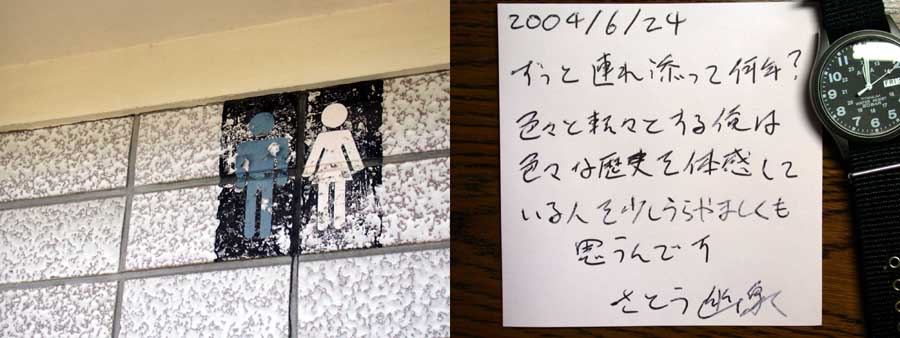 2004/6/24
ずっと連れ添って何年?
色々と転々とする俺は
色々な歴史を体感して
いる人を少しうらやましくも
思うんです
さとう
FRI